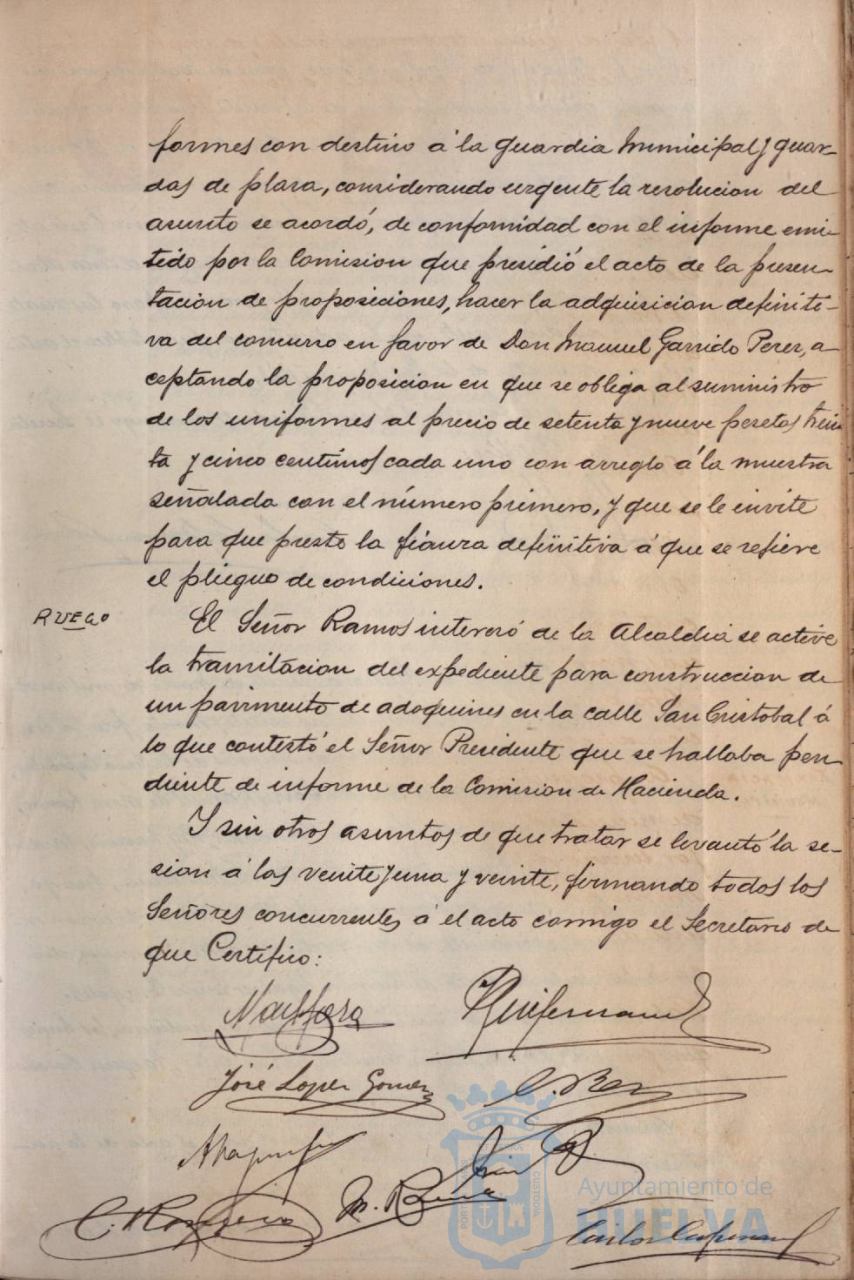 formes con destino á la guardia Municipal y guar-
das de plasa, considerando urgente la resolucion del
asunto se acordó, de conformidad con el informe emi-
tido por la Comision que presidió el acto de la presen-
tacion de proposiciones, hacer la adquisicion definiti-
va del concurso en favor de Don Manuel Garrido Perez, a
ceptando la proposicion en que se obliga al suministro
de los uniformes al precio de setenta y nueve pesetas trein
ta y cinco centimos cada uno con arreglo á la muestra
señalada con el número primero, y que se le invite
para que preste la fianza definitiva á que se refiere
el pliego de condiciones.
RUEGO
El Señor Ramos interesó de la Alcaldia se active
la tramitacion del expediente para construccion de
un pavimento de adoquines en la calle San Cristobal á
lo que contestó el Señor Presidente que se hallaba pen
diente de informe de la Comision de Hacienda.
Y sin otros asuntos de que tratar se levantó la se-
sion á las veinte y una y veinte, firmando todos los
Señores concurrentes á el acto conmigo el Secretario de
que Certifico:
José Lopez Gomez
Ayuntamiento de
HUELVA